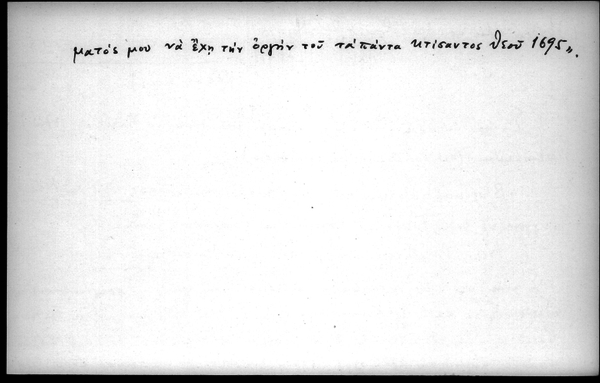 ματός μου νὰ ἔχῃ τὴν ὀργὴν τοῦ τὰ πάντα κτίσαντος Θεοῦ 1695».